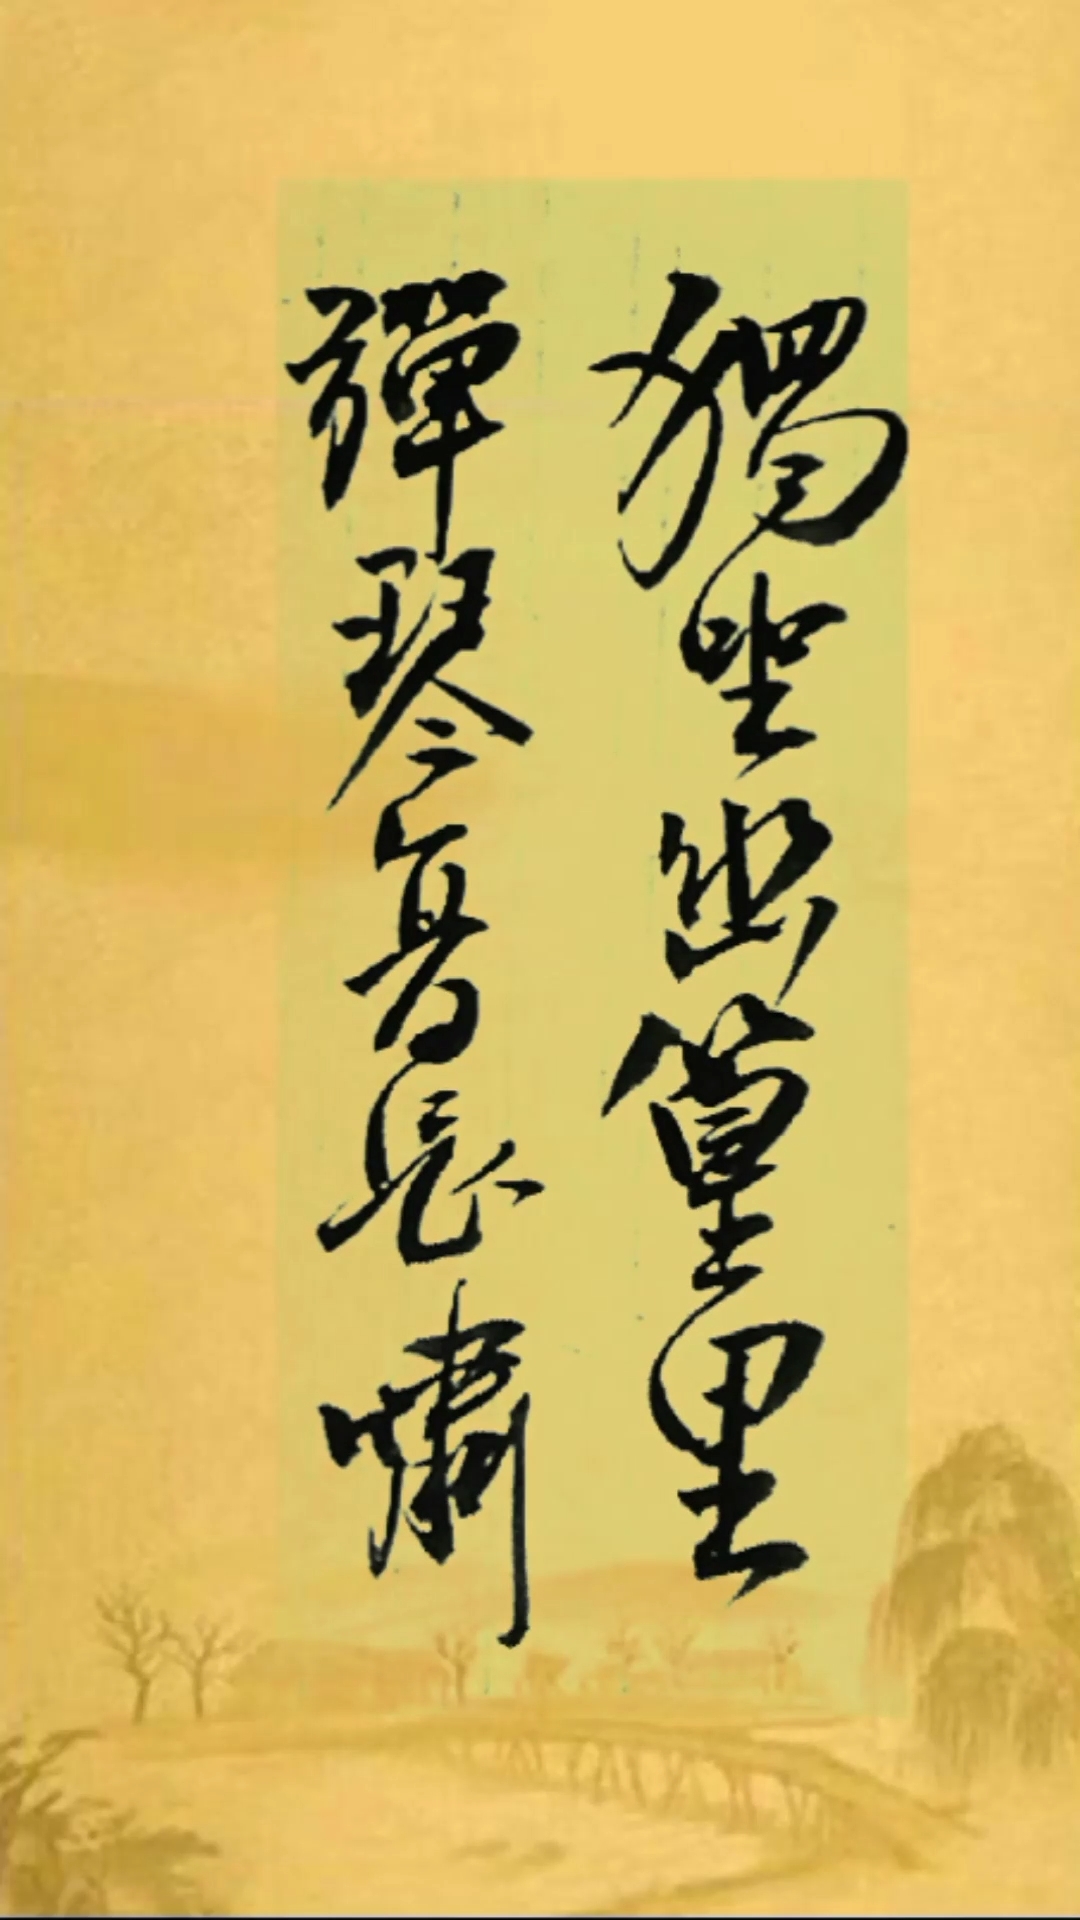 獨坐幽篁里
彈琴復長嘯